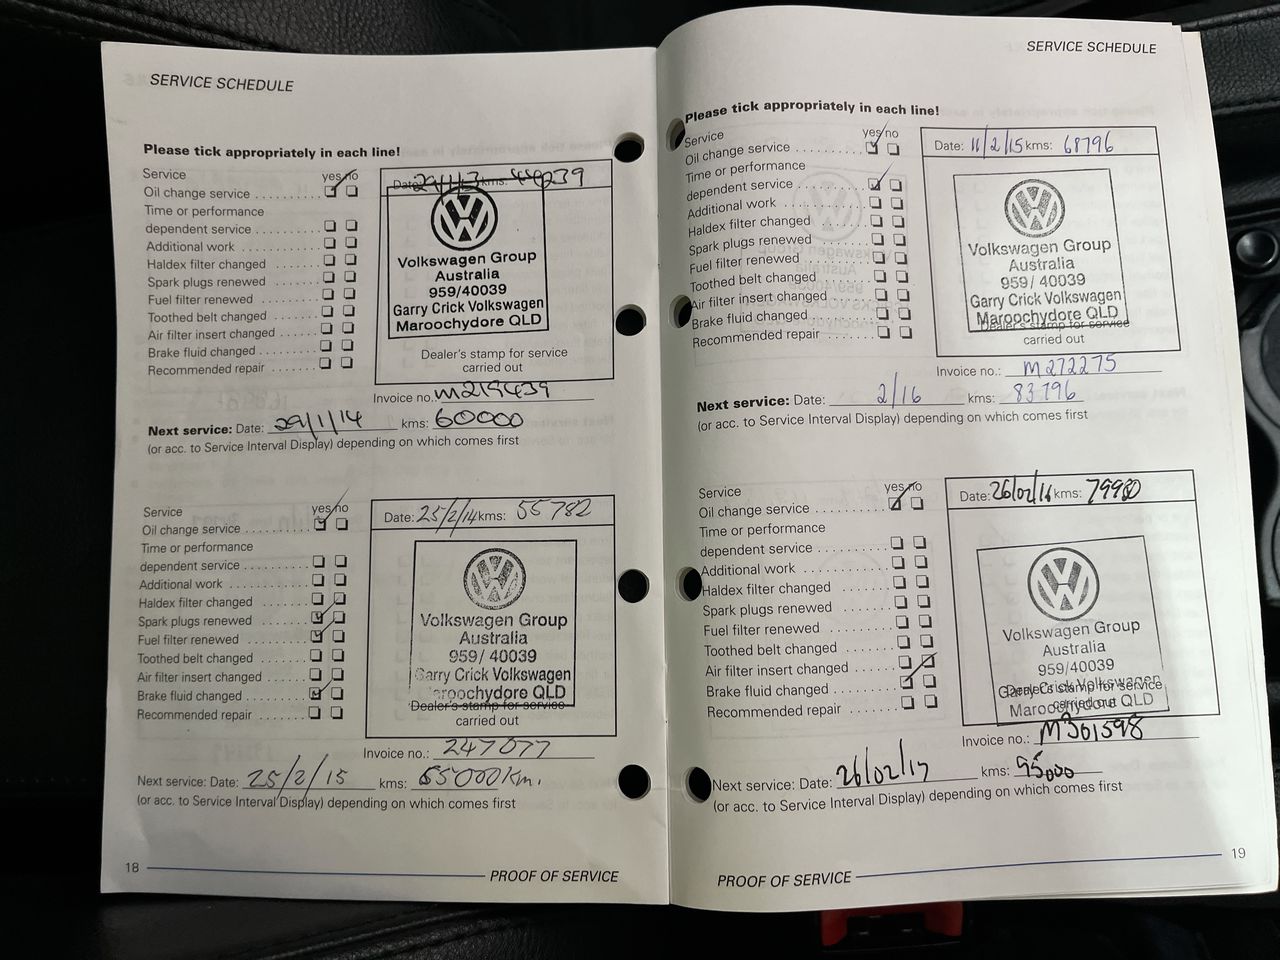 SERVICE SCHEDULE
Please tick appropriately in each line!
Service yes no
Oil change service ..........
Time or performance
dependent service ..........
Additional work ..............
Haldex filter changed .......
Spark plugs renewed .......
Fuel filter renewed ..........
Toothed belt changed ......
Air filter insert changed ....
Brake fluid changed .........
Recommended repair .......
Date: 29/1/13 kms:
Volkswagen Group
Australia
959/40039
Garry Crick Volkswagen
Maroochydore QLD
Dealer's stamp for service
carried out
Invoice no.: M219439
Next service: Date: 29/1/14 kms: 60000
(or acc. to Service Interval Display) depending on which comes first
Service yes no
Oil change service ..........
Time or performance
dependent service ..........
Additional work ..............
Haldex filter changed .......
Spark plugs renewed .......
Fuel filter renewed ..........
Toothed belt changed ......
Air filter insert changed ....
Brake fluid changed .........
Recommended repair .......
Date: 25/2/14 kms: 55782
Volkswagen Group
Australia
959/40039
Garry Crick Volkswagen
Maroochydore QLD
Dealer's stamp for service
carried out
Invoice no.: 247077
Next service: Date: 25/2/15 kms: 65000Km.
(or acc. to Service Interval Display) depending on which comes first
18 PROOF OF SERVICE
SERVICE SCHEDULE
Please tick appropriately in each line!
Service yes no
Oil change service ..........
Time or performance
dependent service ..........
Additional work ..............
Haldex filter changed .......
Spark plugs renewed .......
Fuel filter renewed ..........
Toothed belt changed ......
Air filter insert changed ....
Brake fluid changed .........
Recommended repair .......
Date: 11/2/15 kms: 68796
Volkswagen Group
Australia
959/40039
Garry Crick Volkswagen
Maroochydore QLD
Dealer's stamp for service
carried out
Invoice no.: M272275
Next service: Date: 2/16 kms: 83796
(or acc. to Service Interval Display) depending on which comes first
Service yes no
Oil change service ..........
Time or performance
dependent service ..........
Additional work ..............
Haldex filter changed .......
Spark plugs renewed .......
Fuel filter renewed ..........
Toothed belt changed ......
Air filter insert changed ....
Brake fluid changed .........
Recommended repair .......
Date: 26/02/16 kms: 79980
Volkswagen Group
Australia
959/40039
Garry Crick Volkswagen
Dealer's stamp for service
Maroochydore QLD
carried out
Invoice no.: M301598
Next service: Date: 26/02/17 kms: 95000
(or acc. to Service Interval Display) depending on which comes first
PROOF OF SERVICE 19